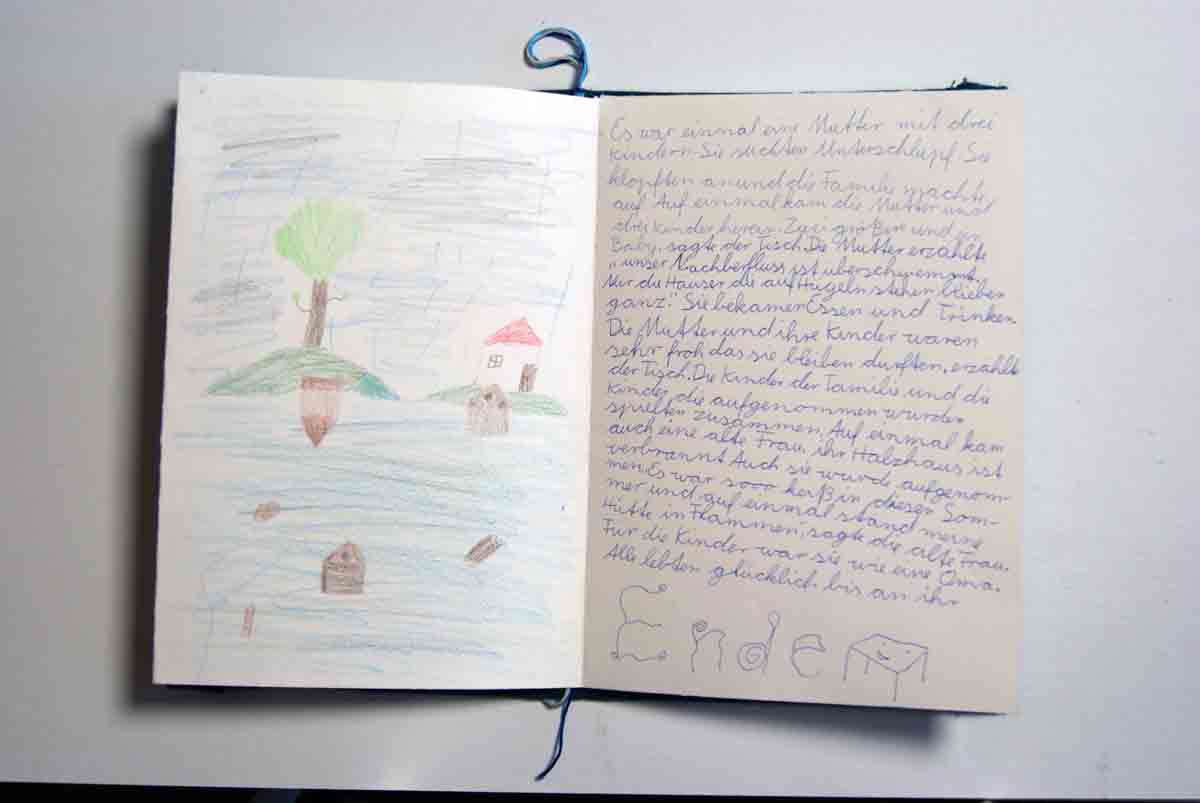 Es war einmal eine Mutter mit drei
Kindern. Sie suchten Unterschlupf. Sie
klopften an und die Familie machte
auf. Auf einmal kam die Mutter und
drei Kinder herein. Zwei größen und ein
Baby, sagte der Tisch. Die Mutter erzählte
„unser Nachberfluss ist überschwemmt
Nur die Häuser die auf Hügeln stehen blieben
ganz." Sie bekamen Essen und Trinken
Die Mutter und ihre Kinder waren
sehr froh das sie bleiben durften, erzählt
der Tisch. Die Kinder der Familie und die
Kinder die aufgenommen wurden
spielten zusammen. Auf einmal kam
auch eine alte Frau, ihr Holzhaus ist
verbrannt. Auch sie wurde aufgenom-
men. Es war sooo heiß in diesen Som-
mer und auf einmal stand meine
Hütte in Flammen, sagte die alte Frau.
Für die Kinder war sie wie eine Oma.
Alle lebten glücklich bis an ihr
Ende